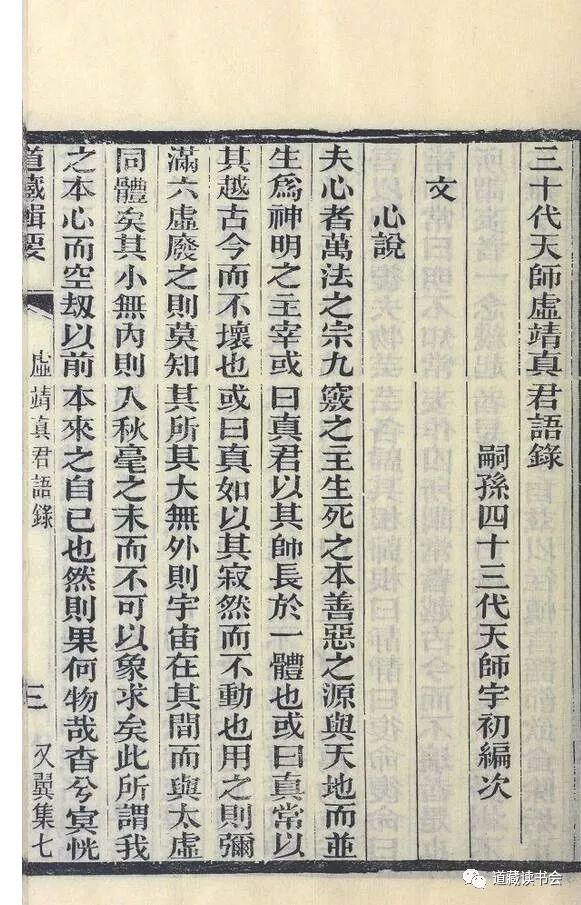 三十代天師虛靖真君語錄
嗣孫四十三代天師宇初編次
文
心說
夫心者萬法之宗九竅之主生死之本善惡之源與天地而並
生爲神明之主宰或曰真君以其帥長於一體也或曰真常以
其越古今而不壞也或曰真如以其寂然而不動也用之則彌
滿六虛廢之則莫知其所其大無外則宇宙在其間而與太虛
同體矣其小無內則入秋毫之末而不可以象求矣此所謂我
之本心而空刼以前本來之自已也然則果何物哉杳兮冥恍
道藏輯要
虛靖真君語錄
三
又翼集七
道藏读书会